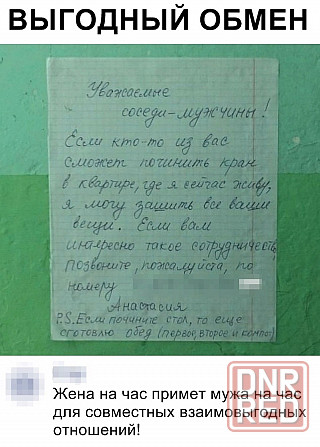 ВЫГОДНЫЙ ОБМЕН
Уважаемые
соседи-мужчины!
Если кто-то из вас
сможет починить кран
в квартире, где я сейчас живу,
я могу зашить все ваши
вещи. Если вам
интересно такое сотрудничество,
позвоните, пожалуйста, по
номеру
Анастасия
P.S. Если почините стол, то еще
сготовлю обед (первое, второе и компот)
Жена на час примет мужа на час
для совместных взаимовыгодных
отношений!
DNR
RED